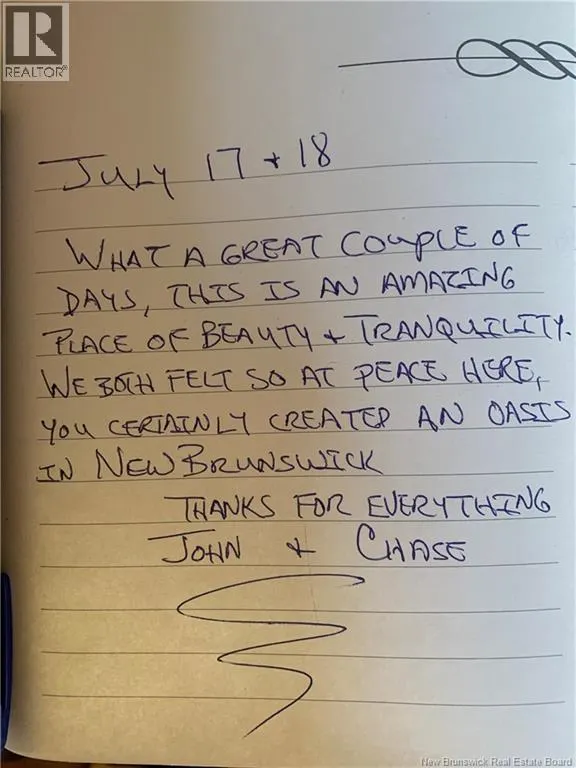 REALTOR®
JULY 17 + 18
WHAT A GREAT COUPLE OF
DAYS, THIS IS AN AMAZING
PLACE OF BEAUTY + TRANQUILITY.
WE BOTH FELT SO AT PEACE HERE,
YOU CERTAINLY CREATED AN OASIS
IN NEW BRUNSWICK
THANKS FOR EVERYTHING
JOHN + CHASE
New Brunswick Real Estate Board